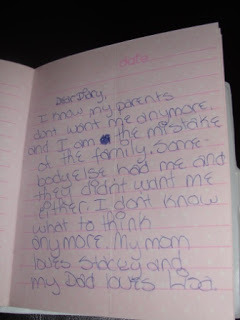 date
Dear Diary,
I know my parents
dont want me anymore.
and I am the mistake
of the family. Some-
body else had me and
they didnt want me
either. I dont know
what to think
anymore. My mom
loves Stacey and
my Dad loves Lisa.